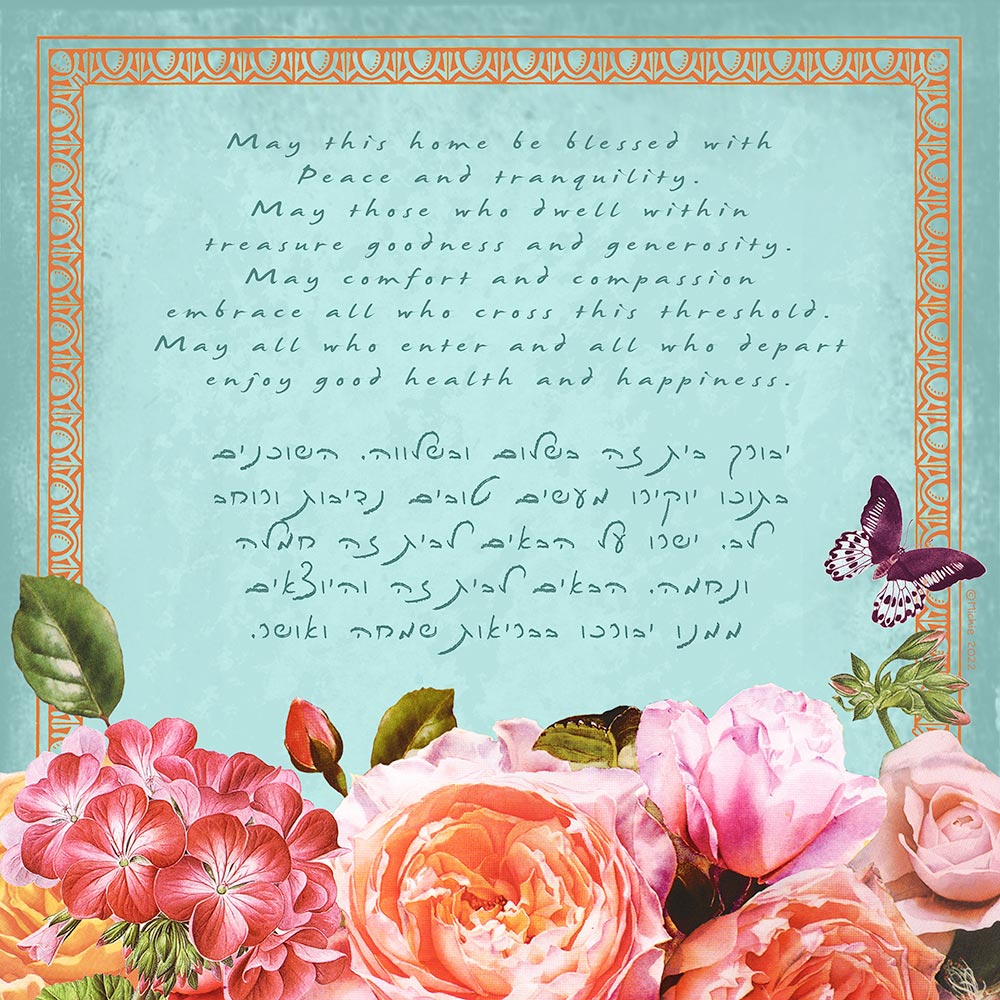 May this home be blessed with
Peace and tranquility.
May those who dwell within
treasure goodness and generosity.
May comfort and compassion
embrace all who cross this threshold.
May all who enter and all who depart
enjoy good health and happiness.
יבורך בית זה בשלום ובשלווה. השוכנים
בתוכו יוקירו מעשים טובים נדיבות ורוחב
לב. ישרו על הבאים לבית זה חמלה
ונחמה. הבאים לבית זה והיוצאים
ממנו יבורכו בבריאות שמחה ואושר.
©Mickie 2022